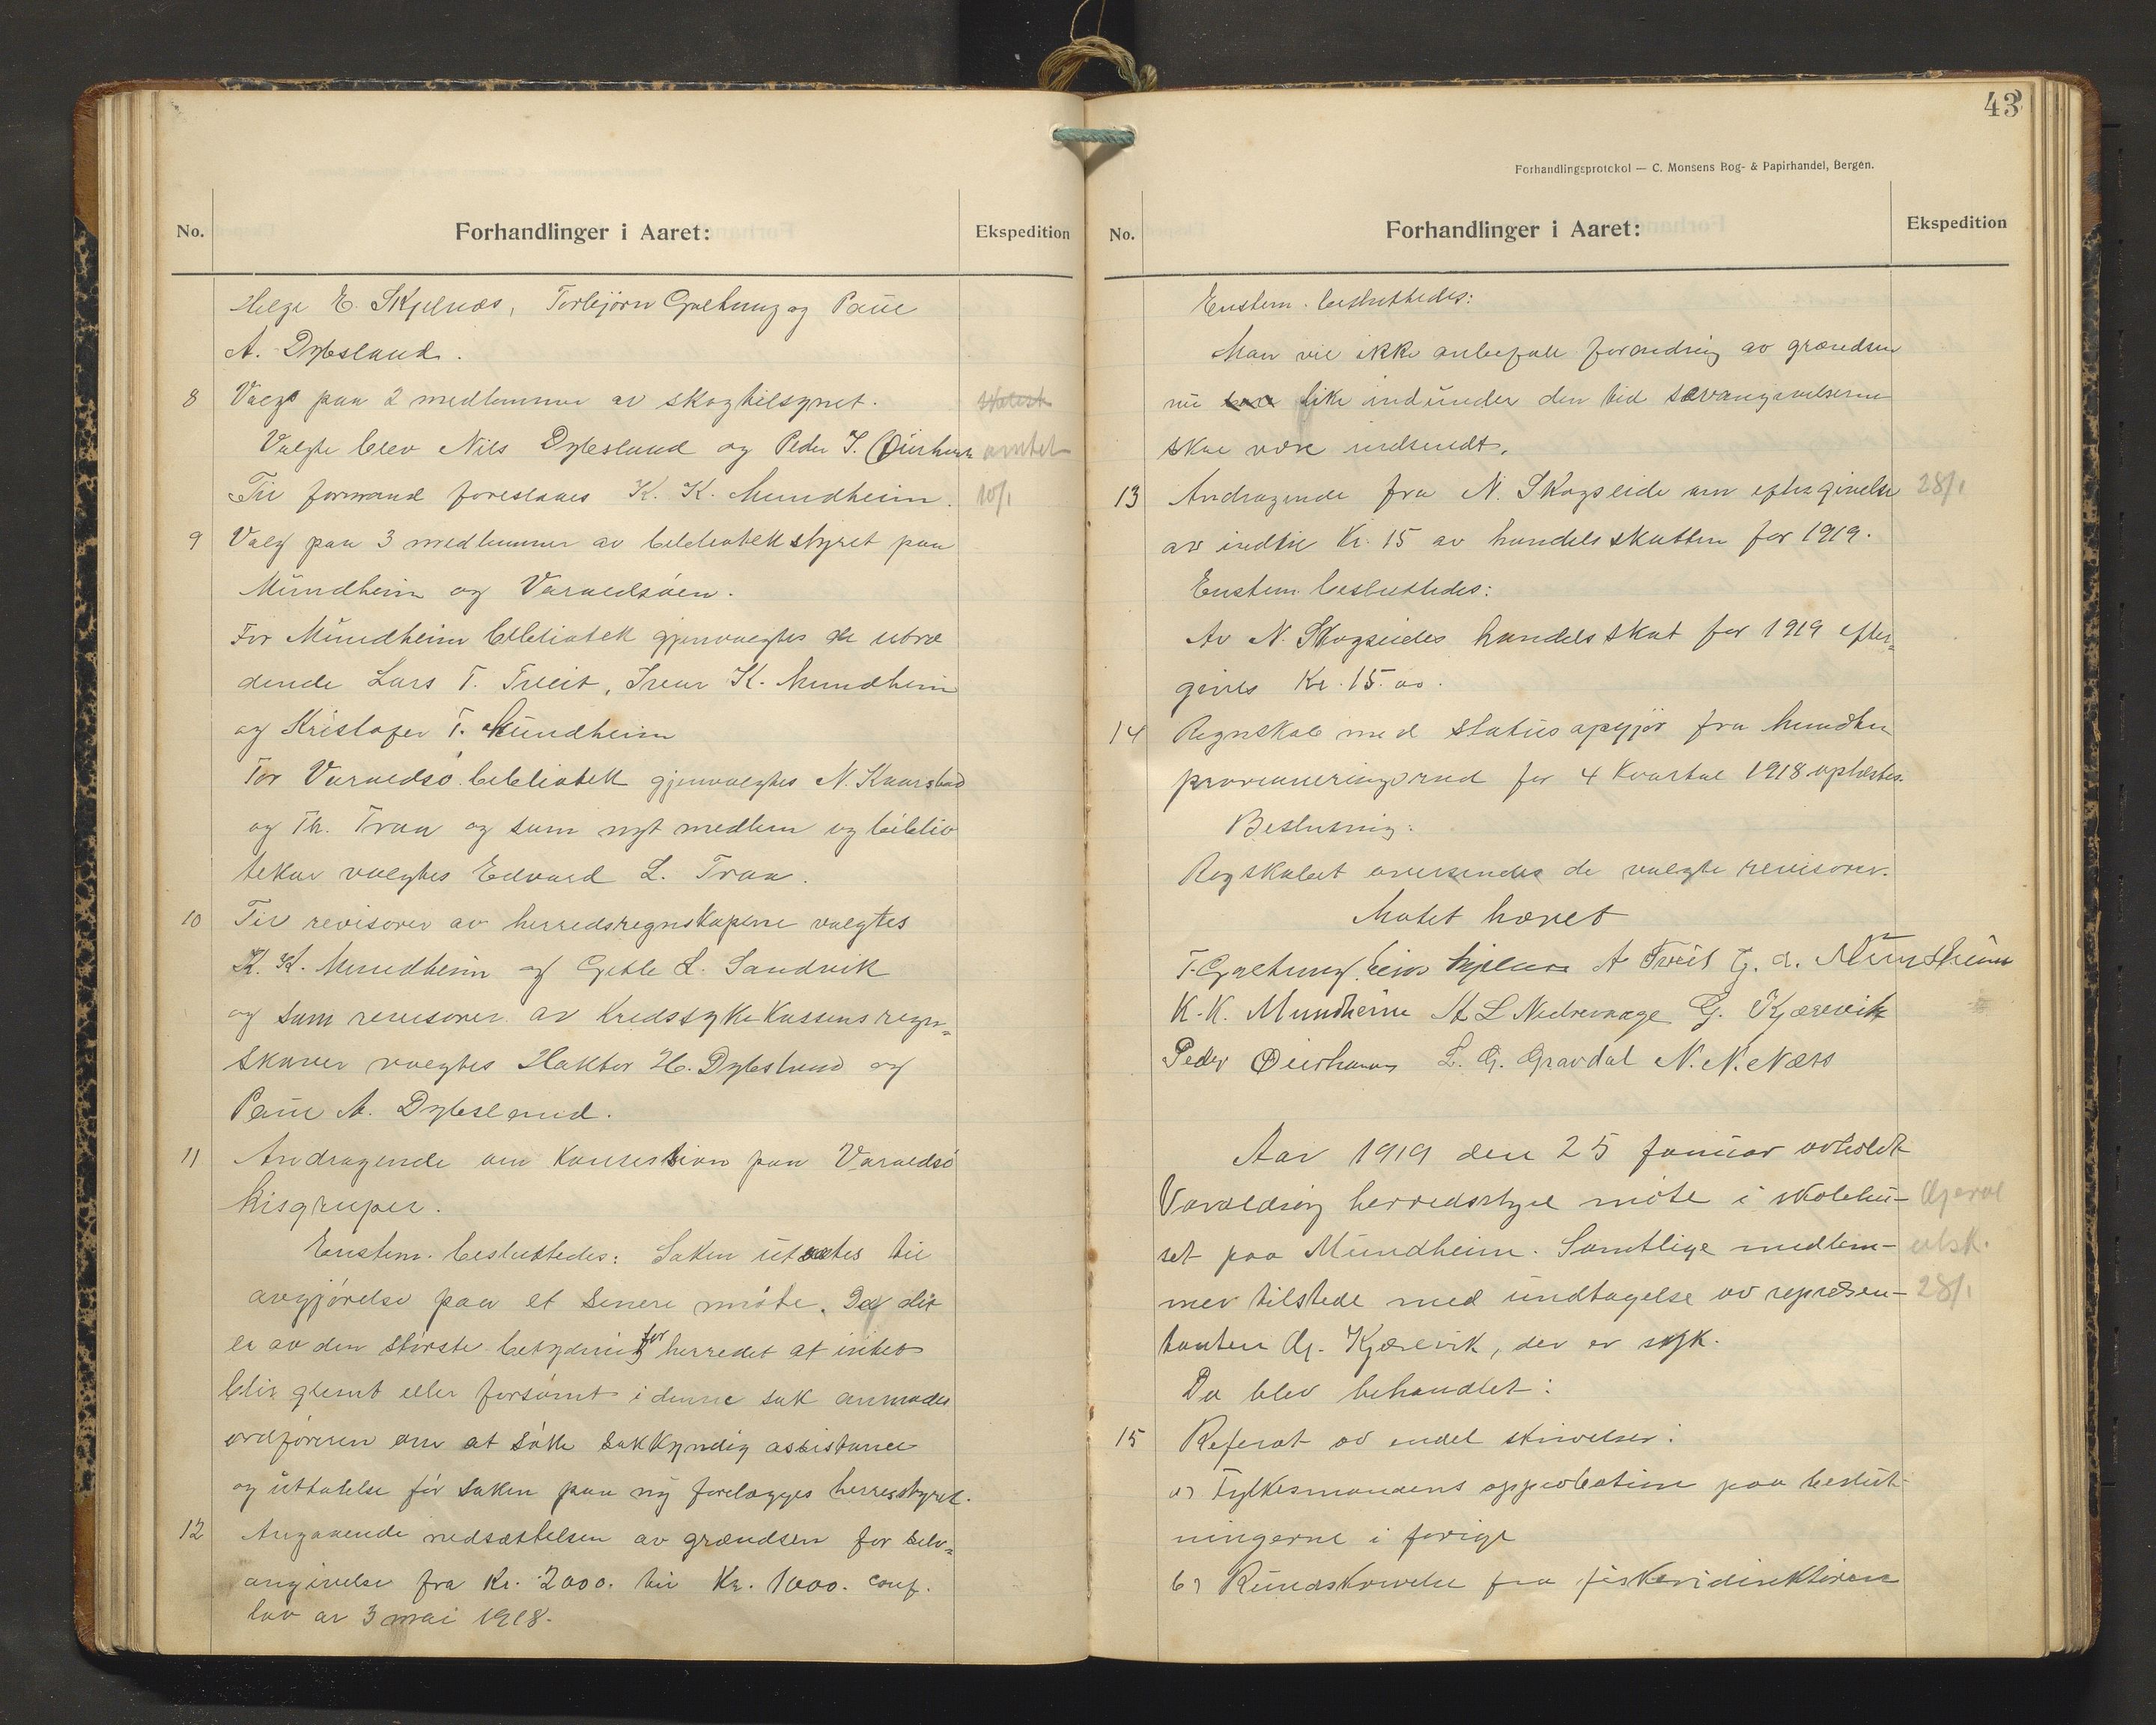 No.
Forhandlinger i Aaret:
Ekspedition
Helge E. Skjelnæs, Torbjörn Gjethung og Paul
A. Dybsland.
8 Valg paa 2 medlemmer av skogtilsynet.
Valgte blev Nils Dybsland og Peder J. Øierhavn amtet
Til formand foreslaaes K. K. Mundheim. 10/1
9 Valg paa 3 medlemmer av bibliotekstyret paa
Mundheim og Varaldsöen.
For Mundheim bibliotek gjenvalgtes de uttræ
dende Lars T. Tveit, Ivar K. Mundheim
og Kristofer T. Mundheim
For Varaldsö bibliotek gjenvalgtes N. Kaarstad
og Th. Traa og som nyt medlem og biblio
tekar valgtes Edvard L. Traa.
10 Til revisorer av herredsregnskapene valgtes
K. K. Mundheim og Gitle L. Sandvik
og som revisorer av Kredssykekassens regn=
skaber valgtes Haktor H. Dybsland og
Paul A. Dybsland.
11 Andragende om konsession paa Varaldsö
kisgruper.
Enstem. besluttedes: Saken utsættes til
avgjörelse paa et senere möte. Da det
er av den störste betydning for herredet at intet
blir glemt eller forsömt i denne sak anmodes
ordföreren om at söke sakkyndig assistance
og uttalelse för saken paa ny forelægges herresstyret.
12 Angaaende nedsættelsen av grændsen for selv=
angivelse fra Kr. 2000. til Kr. 1000. conf.
lov av 3 mai 1918.
43
Forhandlingsprotokol — C. Monsens Bog- & Papirhandel, Bergen.
No.
Forhandlinger i Aaret:
Ekspedition
Enstem. besluttedes:
Man vil ikke anbefale forandring av grændsen
nu like indunder den tid selvangivelserne
skal være indsendt.
13 Andragende fra N. Skogseide om eftergivelse 28/1
av indtil Kr. 15 av handelsskatten for 1919.
Enstem. besluttedes:
Av N. Skogseides handelsskat for 1919 efter=
gives Kr. 15.00.
14 Regnskab med statusopgjör fra Mundheim
provianteringsraad for 4 Kvartal 1918 oplæstes.
Beslutning:
Regskabet oversendes de valgte revisorer.
Mötet hævet
T. Gjethung A Tveit G. A. Mundheim
K. K. Mundheim A L Nedrevaage G. Kjærevik
Peder Øierhavn L. G. Gravdal N. N. Næss
Aar 1919 den 25 januar avholdt
Varaldsöy herredsstyre möte i skolehu- Gjerne
set paa Mundheim. Samtlige medlem- utsk.
mer tilstede med undtagelse av represen- 28/1
tanten G. Kjærevik, der er syk.
Da blev behandlet:
15 Referat av endel skrivelser:
a) Fylkesmandens approbation paa beslut-
ningerne i forige
b) Rundskrivelse fra fiskeridirektören